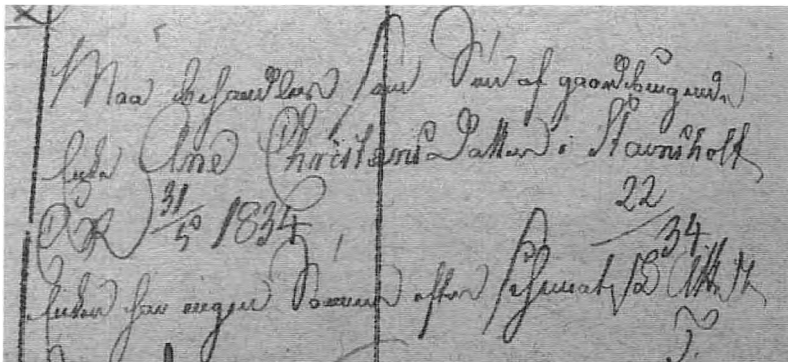 Maa behandles som Søn af gaardbrugende
Enke Ane Christens Datter i Stavnsholt
CR 31/5 1834 22/34.
Enken har ingen Sønner efter Schmidts Att